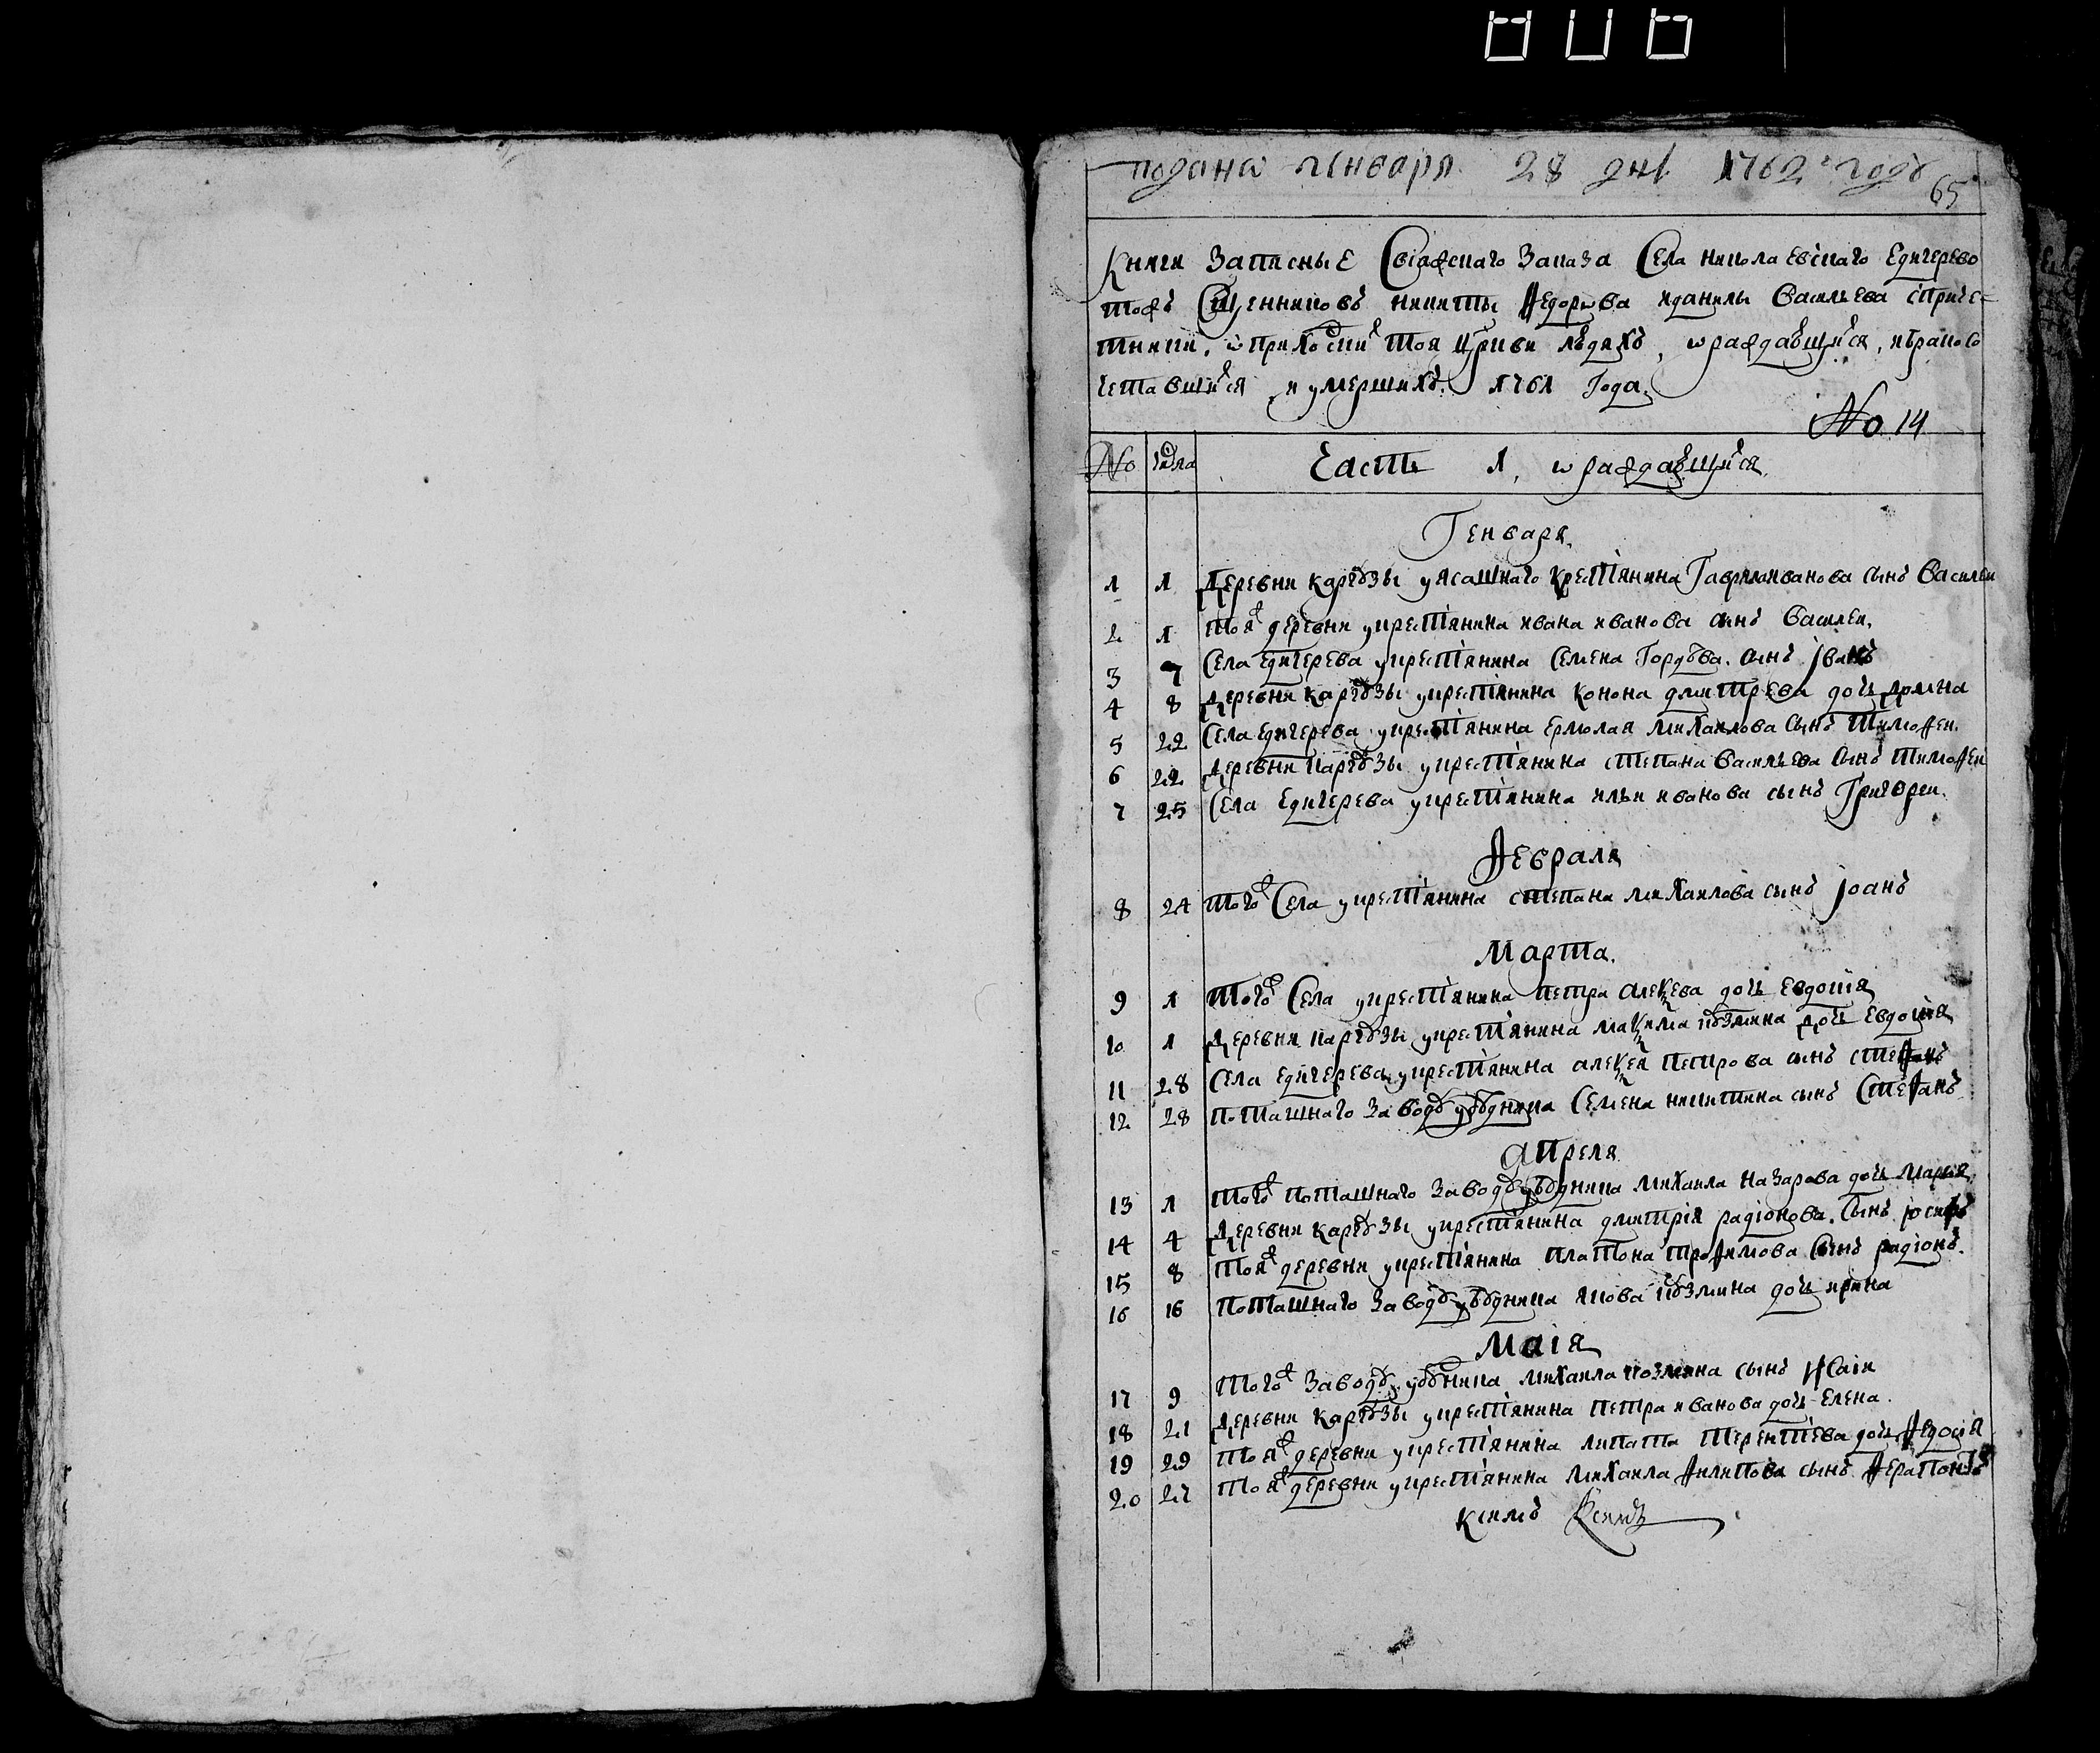 806
подана генваря 28 дня 1762 году
65
Книги записные Свіяжскаго заказа Села николаевскаго Едигерево
тожъ Сщенниковъ никиты Ѳедорова и данилы Васильева с приче=
тники, ѡ приходскихъ тоя цркви людяхъ, ѡ раждающихся, и брако со
четавшихся и умершихъ. 1761 года.
No 14
No числа Часть 1, ѡ раждающихся.
Генваря.
1 1 Деревни каргузы у ясашнаго крестьянина Гаврила иванова сынъ Василеи
2 1 тояж деревни у крестьянина ивана иванова сынъ Василеи.
3 7 Села едигерева у крестьянина Семена Гордѣева. сынъ Іванъ
4 8 Деревни каргузы у крестьянина конона дмитрева дочь домна
5 22 Села Едигерева у крестьянина Ермолая михаилова сынъ Тимоѳеи.
6 22 Деревни каргузы у крестьянина степана Васильева сынъ тимоѳеи
7 25 Села Едигерева у крестьянина ильи иванова сынъ Григореи.
Ѳевраля
8 24 тогож Села у крестьянина степана михаилова сынъ Іоанъ
Марта.
9 1 тогож Села у крестьянина петра алеѯева дочь Евдокія
10 1 Деревни каргузы у крестьянина маѯима кузмина дочь Евдокія
11 28 Села едигерева у крестьянина алеѯея петрова сынъ стеѳанъ
12 28 поташнаго заводу у будника Семена никитина сынъ Стеѳанъ
апреля
13 1 тогож поташнаго заводу у будника михаила назарова дочь марія
14 4 Деревни каргузы у крестьянина дмитрія радіонова. сынъ іосиѳъ
15 8 тояж деревни у крестьянина платона троѳимова сынъ радіонъ.
16 16 поташнаго заводу у будника якова кузмина дочь ирина
Маія
17 9 тогож заводу у будника михаила козмина сынъ Исаіи
18 21 Деревни каргузы у крестьянина петра иванова дочь Елена.
19 29 тояж деревни у крестьянина липата терентьева дочь Ѳедосія
20 27 тояж деревни у крестьянина михаила Ѳилипова сынъ Ѳерапонтъ
К симъ К симъ